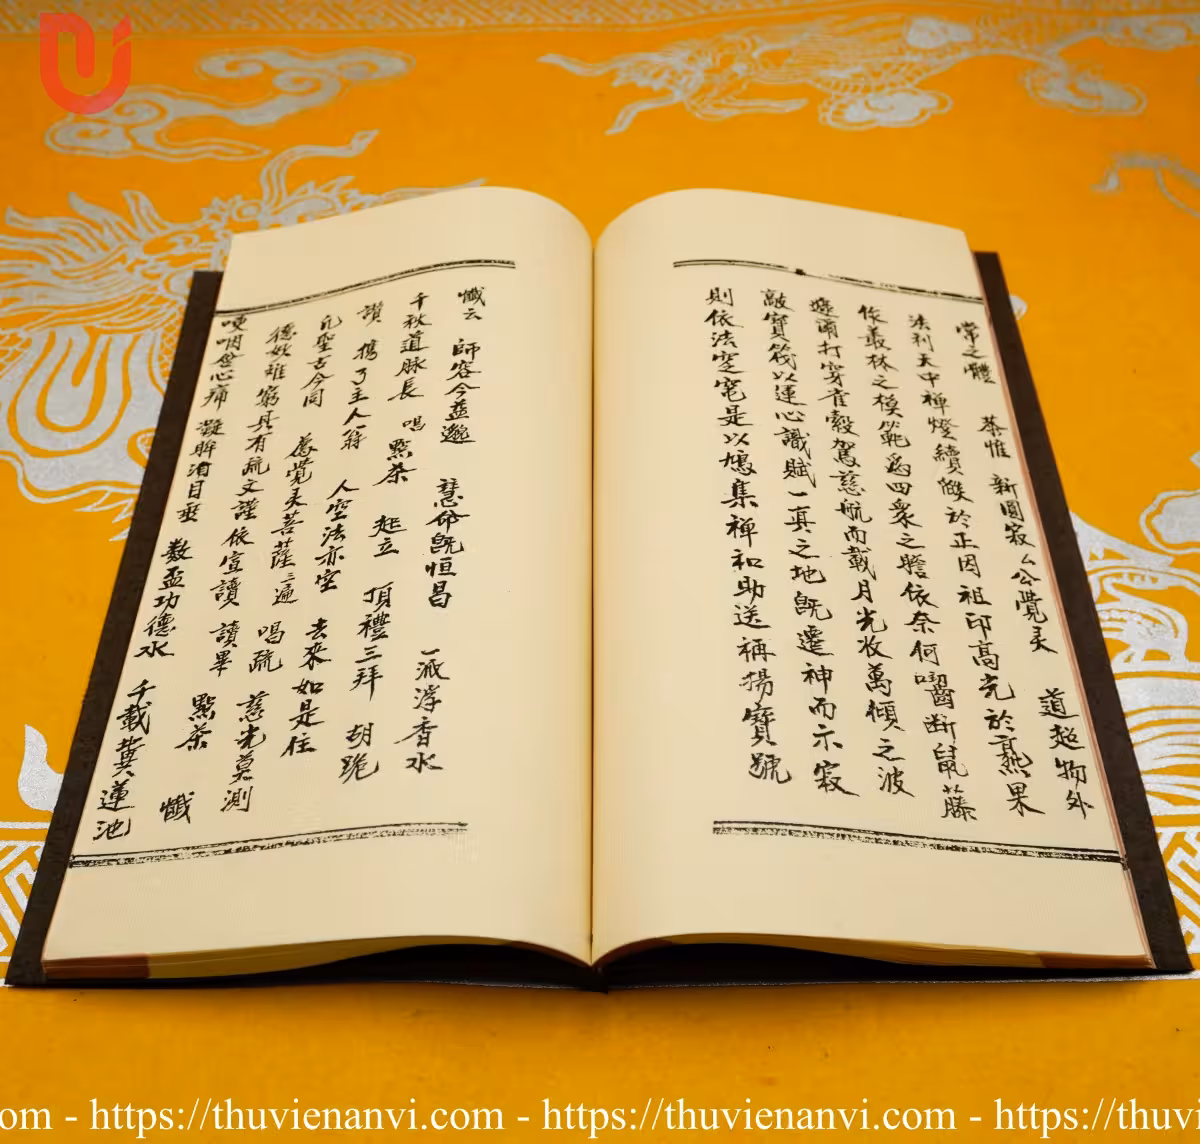 常之體 恭惟 新圓寂ム公覺灵 道超物外
法利天中禅燈續燄於正因祖印高光於熟果
作叢林之模範為四衆之瞻依奈何囓断鼠藤
遽爾打穿雀縠駕慈航而載月光收萬傾之波
敲寶筏以運心識賦一真之地旣遷神而示寂
則依法空窀是以鳩集禅和助送称揚寶號
懺云 師容今益邈 慧命旣恒昌 一派浮香水
千秋道脉長 唱 㸃茶 起立 頂禮三拜 胡跪
讃 携了主人翁 人空法亦空 去來如是住
凡聖古今同 覺灵菩薩三遍 唱疏 慈光莫測
德妙难窮具有疏文謹依宣讀 讀畢 㸃茶 懺
哽咽心痛 凝眸泪目垂 数盃功德水 千載蓮池
om - https://thuvienanvi.com - https://thuvienanvi.com - https://thuvi